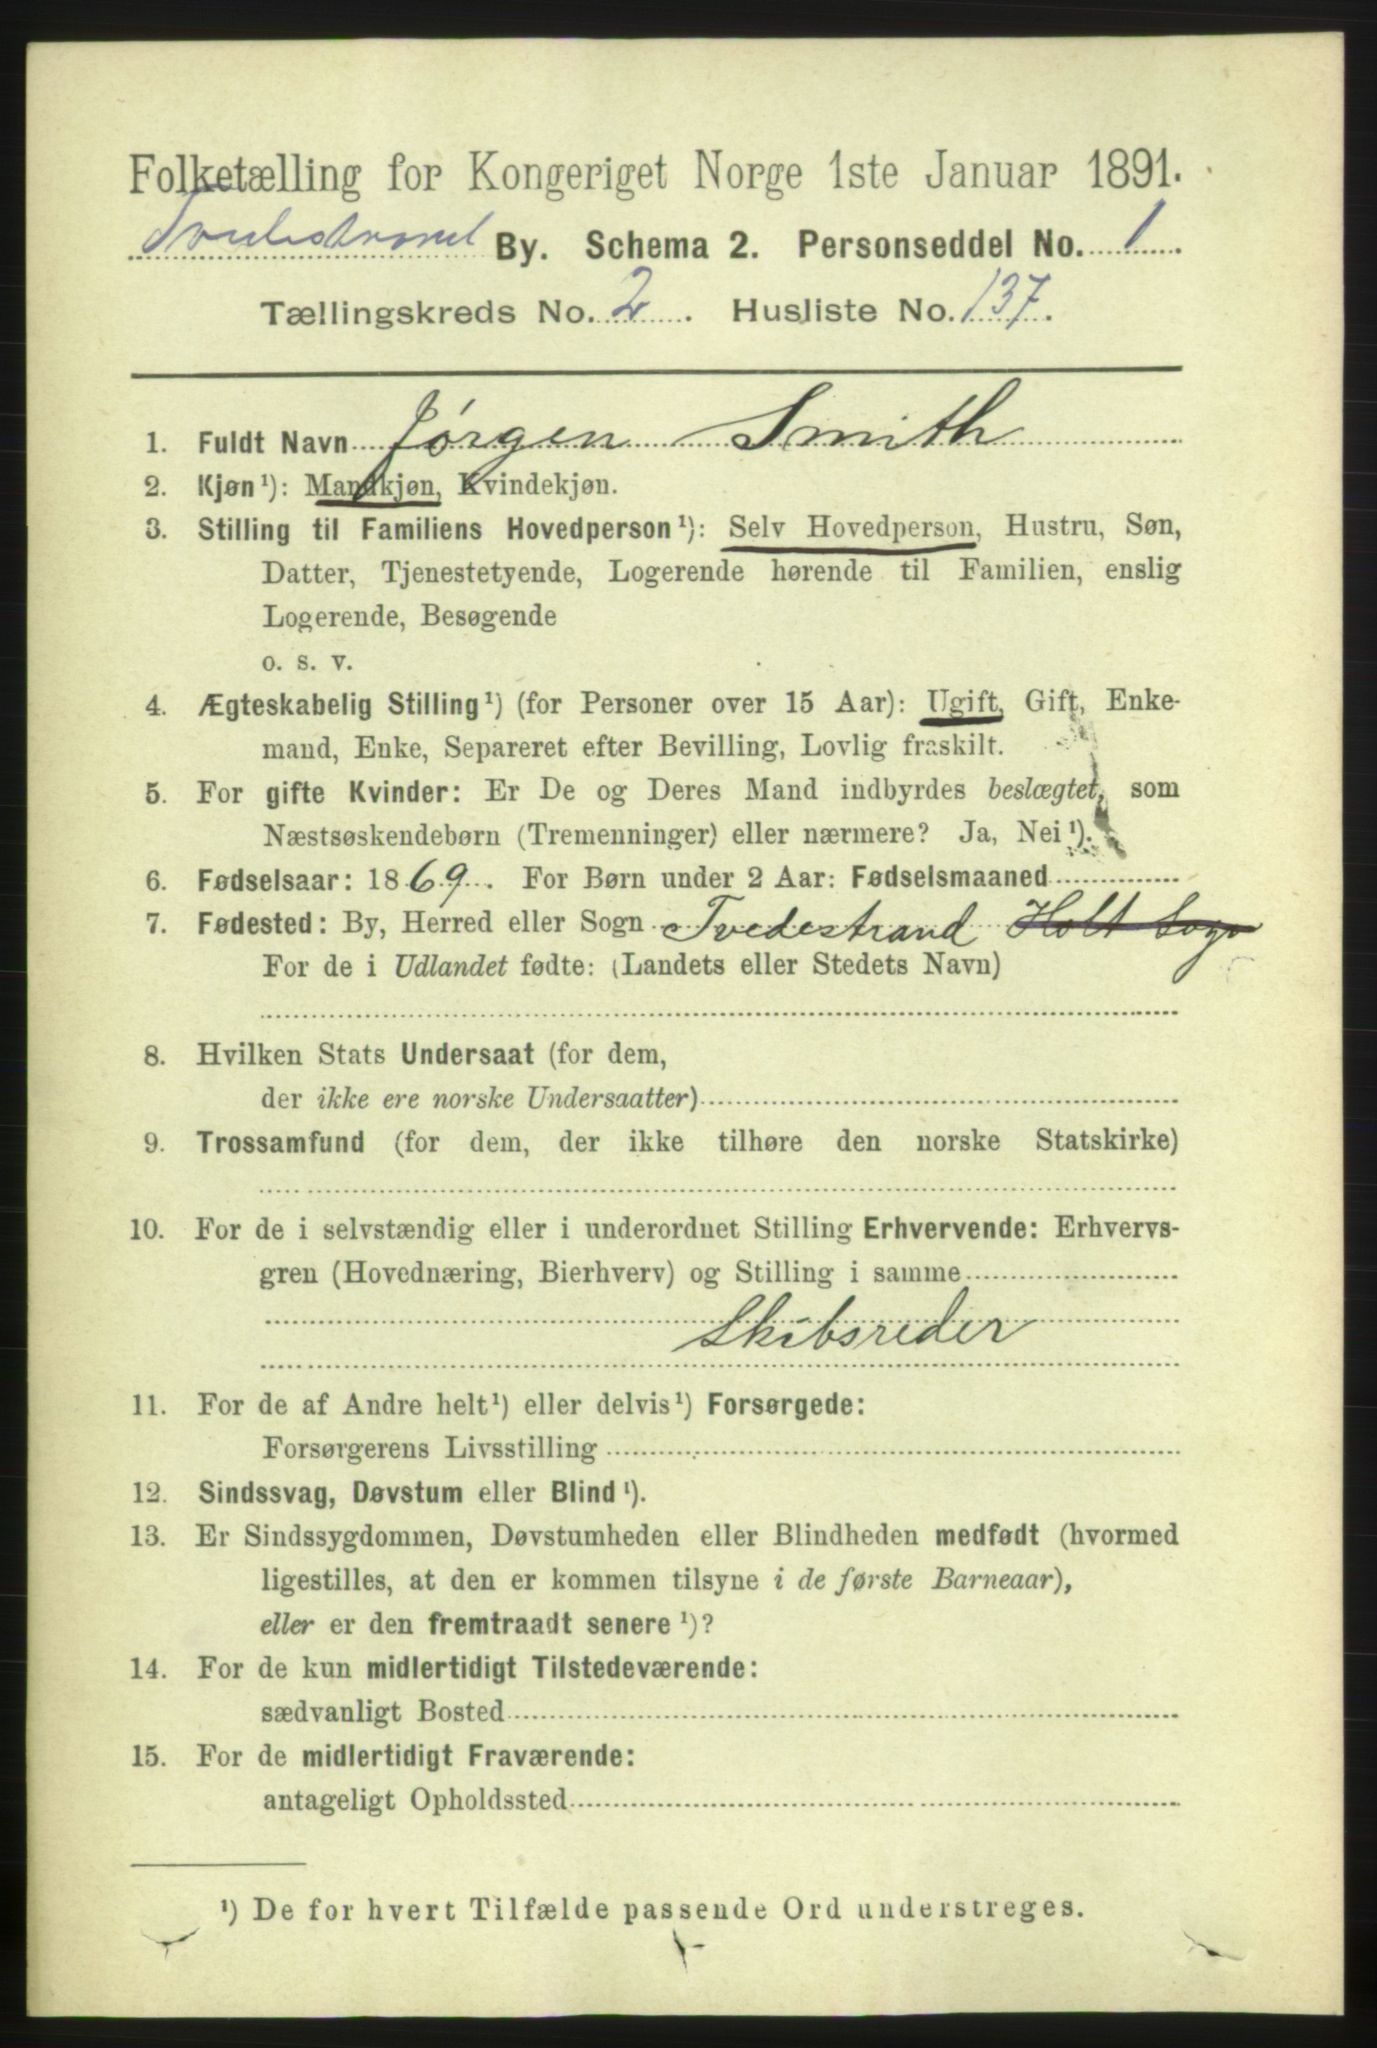 Folketælling for Kongeriget Norge 1ste Januar 1891.
Tvedestrand By. Schema 2. Personseddel No. 1.
Tællingskreds No. 2. Husliste No. 137.
1. Fuldt Navn Jørgen Smith
2. Kjøn¹): Mandkjøn, Kvindekjøn.
3. Stilling til Familiens Hovedperson¹): Selv Hovedperson, Hustru, Søn,
Datter, Tjenestetyende, Logerende hørende til Familien, enslig
Logerende, Besøgende
o. s. v.
4. Ægteskabelig Stilling¹) (for Personer over 15 Aar): Ugift, Gift, Enke-
mand, Enke, Separeret efter Bevilling, Lovlig fraskilt.
5. For gifte Kvinder: Er De og Deres Mand indbyrdes beslægtet, som
Næstsøskendebørn (Tremenninger) eller nærmere? Ja, Nei¹).
6. Fødselsaar: 1869. For Børn under 2 Aar: Fødselsmaaned
7. Fødested: By, Herred eller Sogn Tvedestrand Holt Sogn
For de i Udlandet fødte: (Landets eller Stedets Navn)
8. Hvilken Stats Undersaat (for dem,
der ikke ere norske Undersaatter)
9. Trossamfund (for dem, der ikke tilhøre den norske Statskirke)
10. For de i selvstændig eller i underordnet Stilling Erhvervende: Erhvervs-
gren (Hovednæring, Bierhverv) og Stilling i samme
Skibsreder
11. For de af Andre helt¹) eller delvis¹) Forsørgede:
Forsørgerens Livsstilling
12. Sindssvag, Døvstum eller Blind¹).
13. Er Sindssygdommen, Døvstumheden eller Blindheden medfødt (hvormed
ligestilles, at den er kommen tilsyne i de første Barneaar),
eller er den fremtraadt senere¹)?
14. For de kun midlertidigt Tilstedeværende:
sædvanligt Bosted
15. For de midlertidigt Fraværende:
antageligt Opholdssted
¹) De for hvert Tilfælde passende Ord understreges.